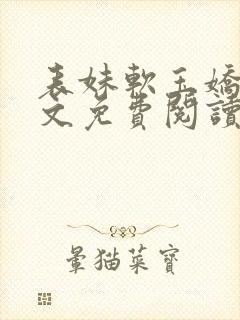 表妹軟玉嬌
文免費閱讀
暈貓菜寶